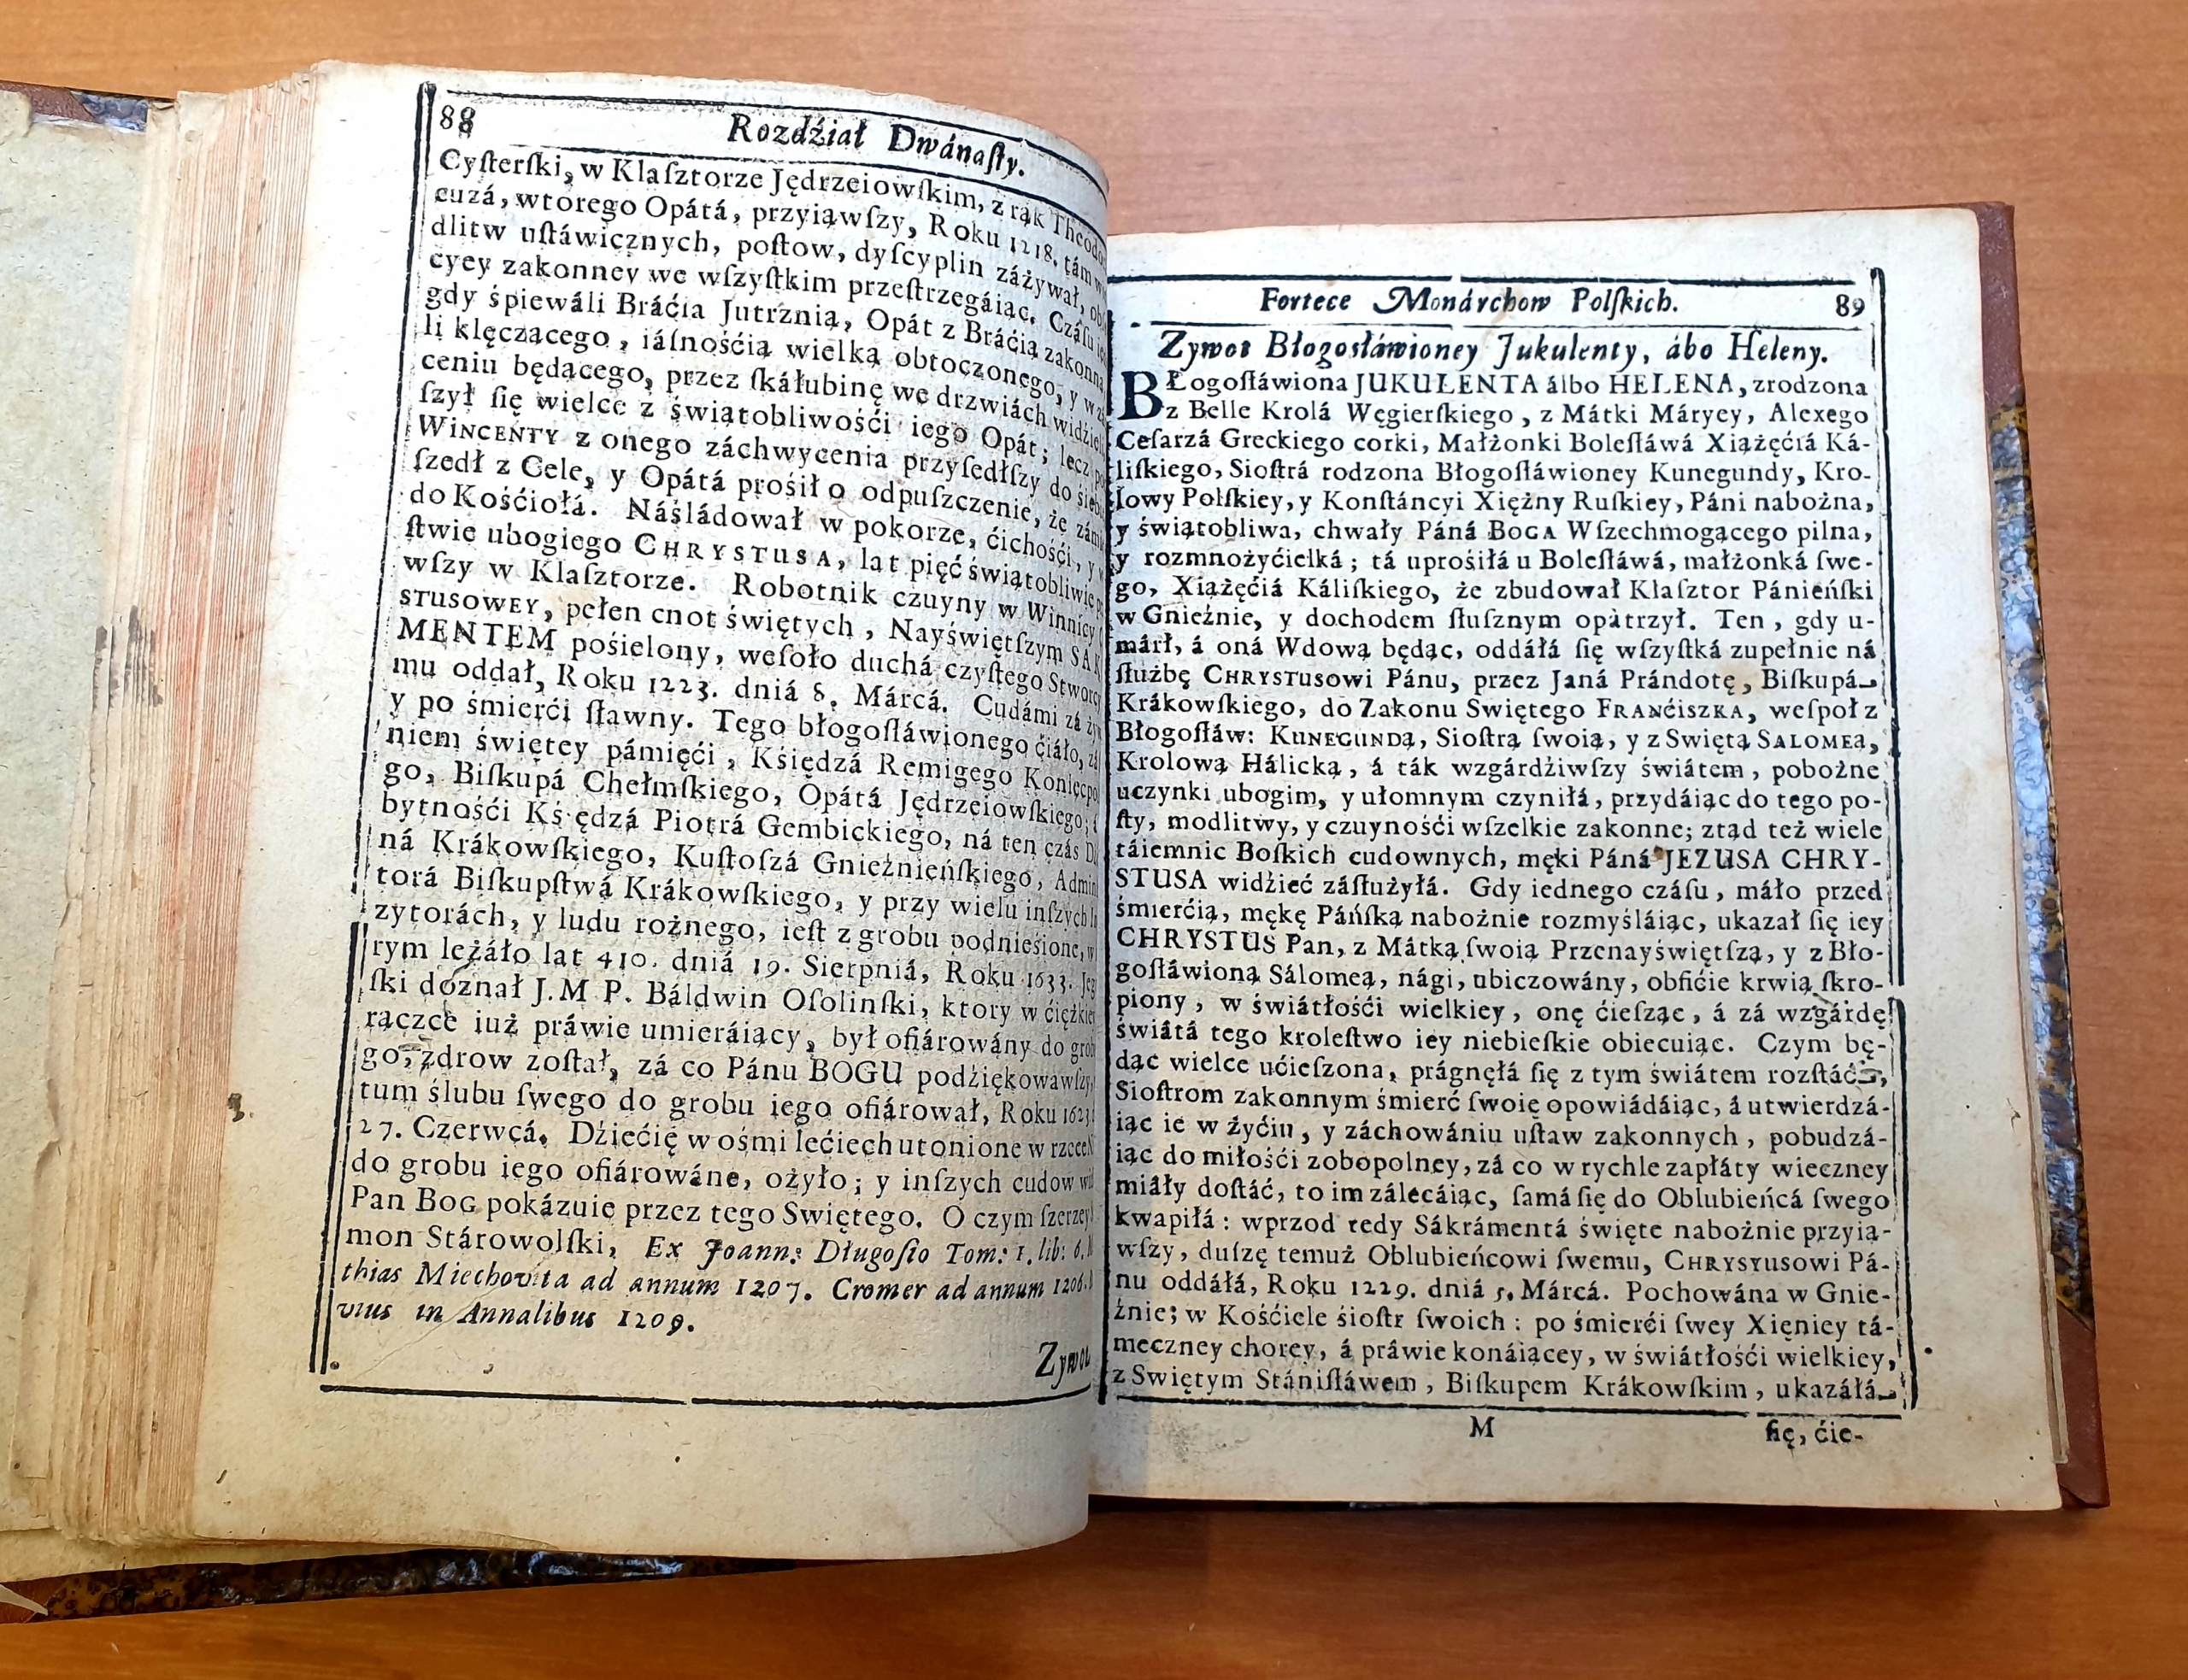 88
Rozdźiał Dwánaſty.
Cyſterſki, w Klaſztorze Jędrzeiowſkim, z rąk Theodo
cuzá, wtorego Opátá, przyiąwſzy, Roku 1218. tám w
dlitw uſtáwicznych, poſtow, dyſcyplin záżywał,
cyey zakonney we wſzyſtkim przeſtrzegáiąc. Czáſu
gdy śpiewáli Bráćia Jutrznią, Opát z Bráćią zakonną
li klęczącego, iáſnośćią wielką obtoczonego, y w
ceniu będącego, przez ſkáłubinę we drzwiách widźieli
ſzył ſię wielce z świątobliwośći iego Opát; lecz
WINCENTY z onego záchwycenia przyſedłſzy do
ſzedł z Cele, y Opátá prośił o odpuſzczenie, że
do Kośćiołá. Náśládował w pokorze, ćichośći, y
ſtwie ubogiego CHRYSTUSA, lat pięć świątobliwie
wſzy w Klaſztorze. Robotnik czuyny w Winnicy
STUSOWEY, pełen cnot świętych, Nayświętſzym SAK
MENTEM pośielony, weſoło duchá czyſtego Stworcy
mu oddał, Roku 1223. dniá 8. Márcá. Cudámi zá
y po śmierći ſławny. Tego błogoſłáwionego ćiáło,
niem świętey pámięći, Kśiędzá Remigego Koniecpol
go, Biſkupá Chełmſkiego, Opátá Jędrzeiowſkiego;
bytnośći Kśędzá Piotrá Gembickiego, ná ten czás
ná Krákowſkiego, Kuſtoſzá Gnieźnieńſkiego, Admin
torá Biſkupſtwá Krákowſkiego, y przy wielu inſzych
zytorách, y ludu rożnego, ieſt z grobu podnieśione,
rym leżáło lat 410. dniá 19. Sierpniá, Roku 1633.
ſki doznał J.M P. Báldwin Oſolinſki, ktory w ćiężkiey
rączce iuż práwie umieráiący, był ofiárowány do
go, zdrow zoſtał, zá co Pánu BOGU podźiękowawſzy,
tum ślubu ſwego do grobu iego ofiárował, Roku 1623
27. Czerwcá. Dźiećię w ośmi lećiech utonione w rzece
do grobu iego ofiárowáne, ożyło; y inſzych cudow
Pan BOG pokázuie przez tego Swiętego. O czym ſzerzey
mon Stárowolſki, Ex Joann: Długoſio Tom: 1. lib: 6.
thias Miechovita ad annum 1207. Cromer ad annum 1206.
vius in Annalibus 1209.
Zywot
Fortece Monárchow Polſkich.
89
Zywot Błogosłáwioney Jukulenty, ábo Heleny.
BŁogoſłáwiona JUKULENTA álbo HELENA, zrodzona
z Belle Krolá Węgierſkiego, z Mátki Máryey, Alexego
Ceſarzá Greckiego corki, Małżonki Boleſłáwá Xiążęćiá Ká-
liſkiego, Sioſtrá rodzona Błogoſłáwioney Kunegundy, Kro-
lowy Polſkiey, y Konſtáncyi Xiężny Ruſkiey, Páni nabożna,
y świątobliwa, chwały Páná BOGA Wſzechmogącego pilna,
y rozmnożyćielká; tá uprośiłá u Boleſłáwá, małżonká ſwe-
go, Xiążęćiá Káliſkiego, że zbudował Klaſztor Pánieńſki
w Gnieźnie, y dochodem ſłuſznym opátrzył. Ten, gdy u-
márł, á oná Wdową będąc, oddáłá ſię wſzyſtká zupełnie ná
ſłużbę CHRYSTUSOWI Pánu, przez Janá Prándotę, Biſkupá
Krákowſkiego, do Zakonu Swiętego FRANĆISZKA, weſpoł z
Błogoſłáw: KUNEGUNDĄ, Sioſtrą ſwoią, y z Swiętą SALOMEĄ,
Krolową Hálicką, á ták wzgárdźiwſzy świátem, pobożne
uczynki ubogim, y ułomnym czyniłá, przydáiąc do tego po-
ſty, modlitwy, y czuynośći wſzelkie zakonne; ztąd też wiele
táiemnic Boſkich cudownych, męki Páná JEZUSA CHRY-
STUSA widźieć záſłużyłá. Gdy iednego czáſu, máło przed
śmierćią, mękę Páńſką nabożnie rozmyśláiąc, ukazał ſię iey
CHRYSTUS Pan, z Mátką ſwoią Przenayświętſzą, y z Bło-
goſłáwioną Sálomeą, nági, ubiczowány, obficie krwią ſkro-
piony, w świátłośći wielkiey, onę ćieſząc, á zá wzgárdę
świátá tego kroleſtwo iey niebieſkie obiecuiąc. Czym bę-
dąc wielce ućieſzona, prágnęłá ſię z tym świátem rozſtáć,
Sioſtrom zakonnym śmierć ſwoię opowiádáiąc, á utwierdzá-
iąc ie w żyćiu, y záchowániu uſtaw zakonnych, pobudzá-
iąc do miłośći zobopolney, zá co w rychle zapłáty wieczney
miáły doſtáć, to im zálecáiąc, ſamá ſię do Oblubieńcá ſwego
kwapiłá: wprzod tedy Sákrámentá święte nabożnie przyią-
wſzy, duſzę temuż Oblubieńcowi ſwemu, CHRYSTUSOWI Pá-
nu oddáłá, Roku 1229. dniá 5. Márcá. Pochowána w Gnie-
źnie; w Kośćiele śioſtr ſwoich: po śmierći ſwey Xięniey tá-
meczney chorey, á práwie konáiącey, w świátłośći wielkiey,
z Swiętym Stániſłáwem, Biſkupem Krákowſkim, ukazáłá
M
ſię, ćie-